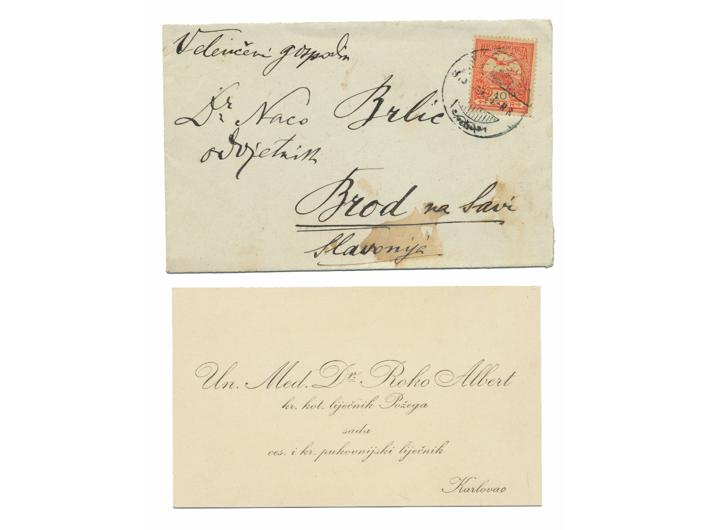 Velenčeni gospodin
Dr. Naco Brlić
odvjetnik
Brod na Savi
Slavonija
10
Un. Med. Dr. Roko Albert
kr. kot. liječnik Požega
sada
ces. i kr. pukovnijski liječnik
Karlovac